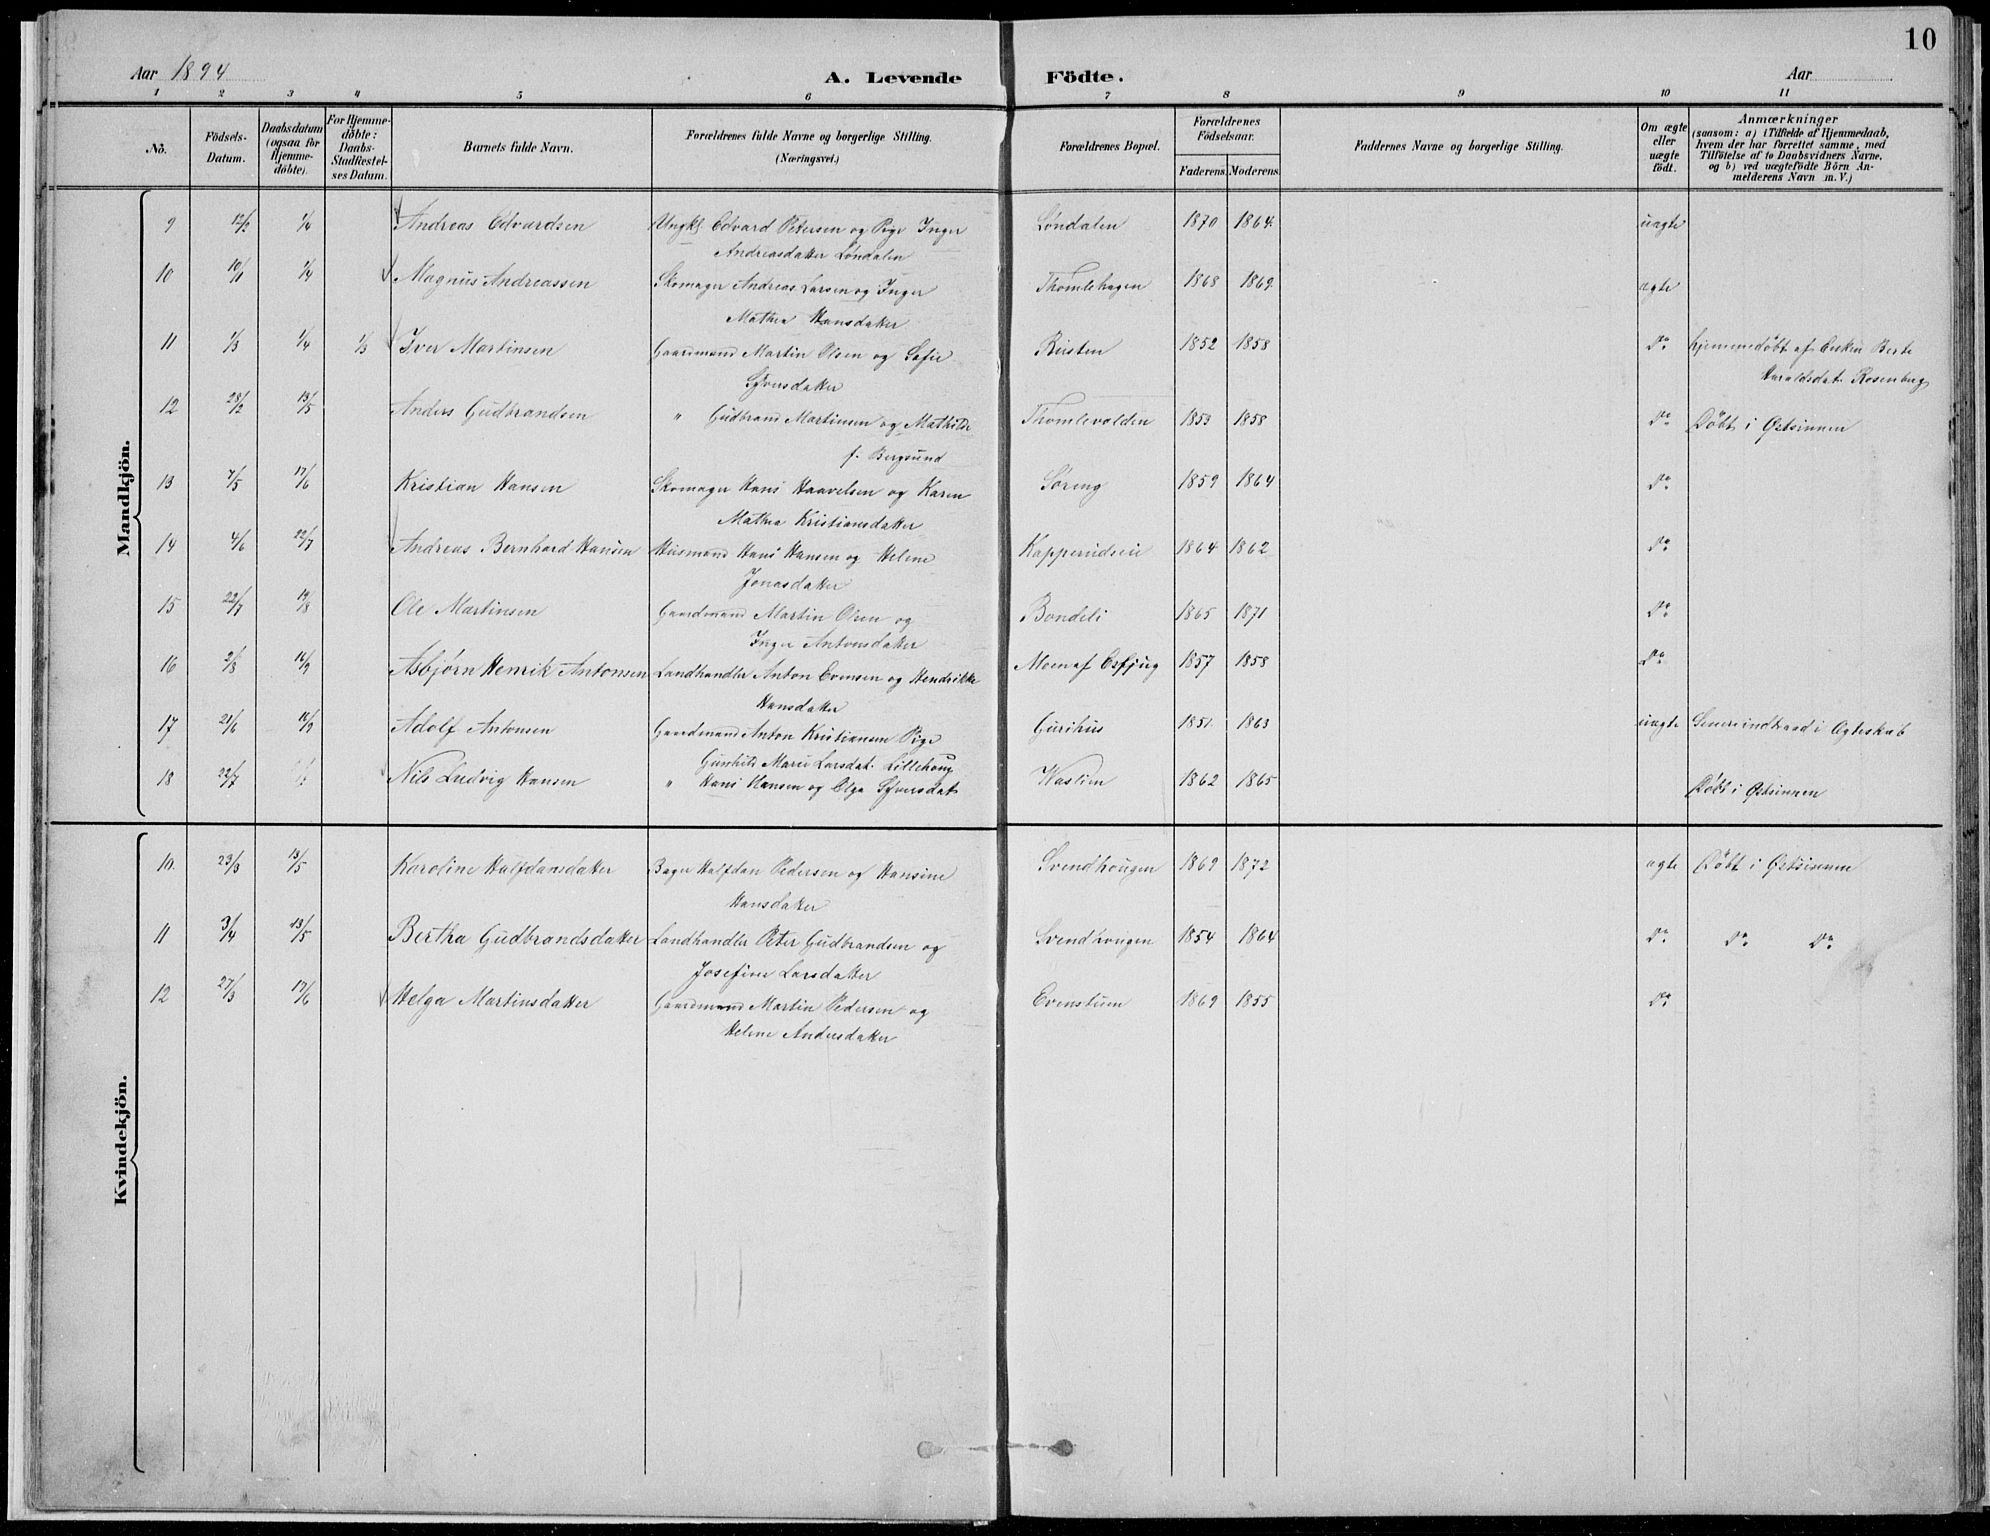 10
Aar 1894 A. Levende Födte. Aar
1 2 3 4 5 6 7 8 9 10 11
Nō. Födsels-Datum. Daabsdatum (ogsaa for Hjemme-döbte). For Hjemme-döbte: Daabs-Stadfæstel-ses Datum. Barnets fulde Navn. Forældrenes fulde Navne og borgerlige Stilling. (Næringsvei.) Forældrenes Bopæl. Forældrenes Födselsaar. Faderens. Moderens. Faddernes Navne og borgerlige Stilling. Om ægte eller uægte födt. Anmærkninger (saasom: a) i Tilfælde af Hjemmedaab, hvem der har forrettet samme, med Tilföielse af to Daabsvidners Navne, og b) ved uægtefödte Börn An-melderens Navn m. V.)
Mandkjön.
9 12/2 1/4 Andreas Edvardsen Ungkl. Edvard Petersen og Pige Inger Løndalen 1870 1864. uægte
Andreasdatter Løndalen
10 10/11 1/4 Magnus Andreassen Skomager Andreas Larsen og Inger Thomlehagen 1868 1869 ægte
Mathea Hansdatter
11 1/3 1/4 1/3 Iver Martinsen Gaardmand Martin Olsen og Sofie Rusten 1852 1858 Do hjemmedöbt af Enken Berte
Syversdatter Haraldsdat. Rosenberg
12 28/2 13/5 Anders Gudbrandsen " Gudbrand Martinsen og Mathilde Thomlevolden 1853 1858 Do Döbt i Østsinnen
f. Bergsund
13 7/5 17/6 Kristian Hansen Skomager Hans Haavelsen og Karen Søreng 1859 1864 Do
Mathea Kristiansdatter
14 4/6 22/7 Andreas Bernhard Hansen Husmand Hans Hansen og Helene Kapperudeie 1864 1862 Do
Jonasdatter
15 22/7 19/8 Ole Martinsen Gaardmand Martin Olsen og Bondeli 1865 1871 Do
Inger Antonsdatter
16 2/8 16/9 Asbjørn Henrik Antonsen Landhandler Anton Evensen og Hendrikke Moen af 1857 1858 Do
Hansdatter
17 21/6 16/9 Adolf Antonsen Gaardmand Anton Kristiansen Pige Gurihus 1851 1863 uægte Senere indtraad i Ægteskab
Gunhild Marie Larsdat. Lillehaug
18 22/7 Nils Ludvig Hansen " Hans Hansen og Olga Syversdat Waslien 1862 1865 Döbt i Østsinnen
Kvindekjön.
10. 23/3 13/5 Karoline Halfdansdatter Bager Halfdan Pedersen og Hansine Svendhougen 1869 1872 ægte Döbt i Østsinnen
Hansdatter
11 3/4 13/5 Bertha Gudbrandsdatter Landhandler Peter Gudbrandsen og Svendhougen 1854 1864 Do Do Do
Josefine Larsdatter
12 27/3 17/6 Helga Martinsdatter Gaardmand Martin Pedersen og Evenstuen 1869 1855 Do
Helene Andersdatter